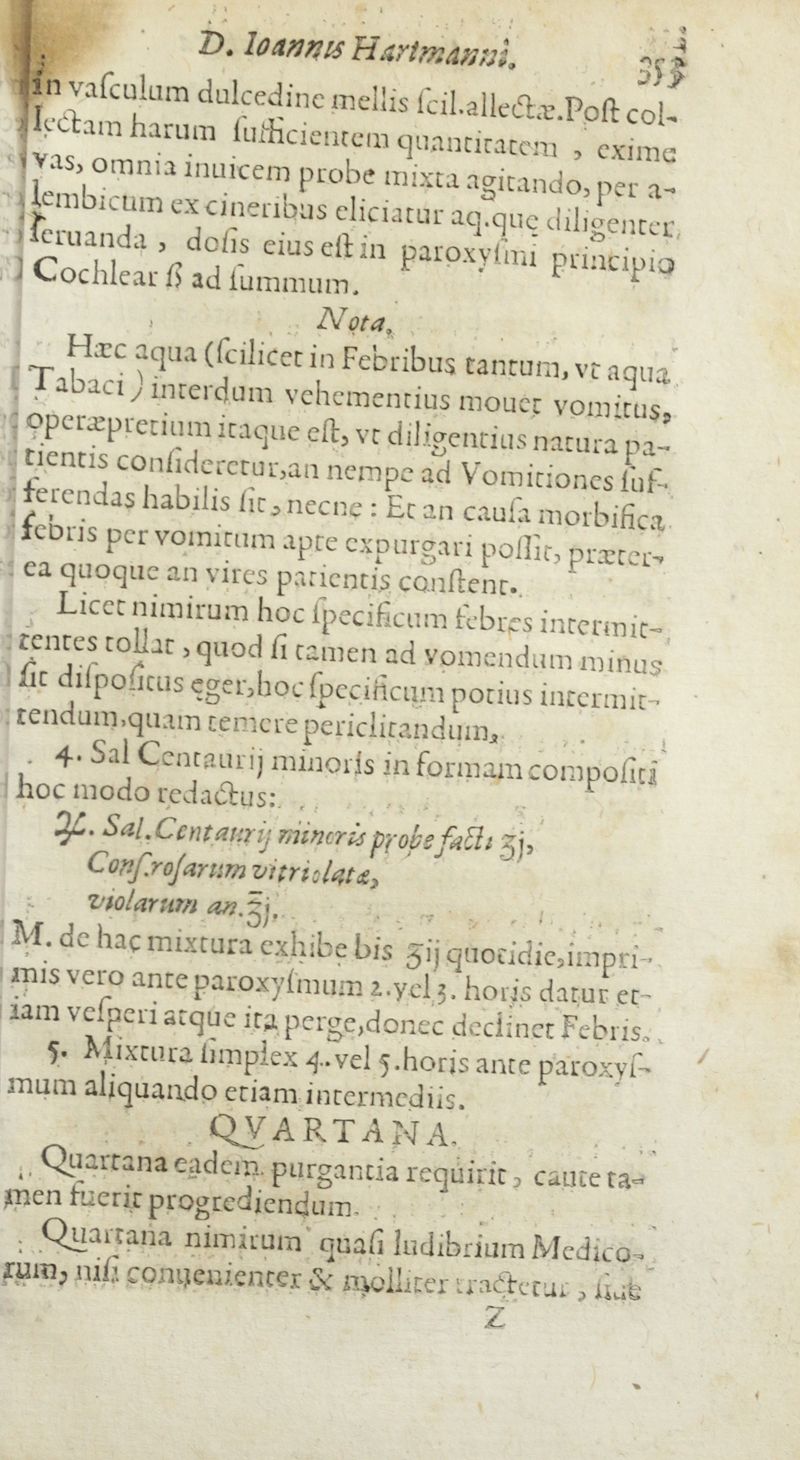 D. Ioannis Hartmanni. 353
in vaſculum dulcedine mellis ſcil.allectæ.Poſt col-
lectam harum ſufficientem quantitatem , exime
vas, omnia inuicem probe mixta agitando, per a-
lembicum ex cineribus eliciatur aq.quę diligenter
ſeruanda , doſis eius eſt in paroxyſmi principio
Cochlear ß ad ſummum.
Nota,
Hæc aqua (ſcilicet in Febribus tantum, vt aqua
Tabaci) interdum vehementius mouet vomitus,
operæpretium itaque eſt, vt diligentius natura pa-
tientis conſideretur,an nempe ad Vomitiones ſuf-
ferendas habilis ſit, necne : Et an cauſa morbifica
febris per vomitum apte expurgari poſſit, præter-
ea quoque an vires patientis conſtent.
Licet nimirum hoc ſpecificum febres intermit-
tentes tollat , quod ſi tamen ad vomendum minus
ſit diſpoſitus ęger,hoc ſpecificum potius intermit-
tendum,quam temere periclitandum,
4. Sal Centaurij minoris in formam compoſiti
hoc modo redactus:
♃. Sal.Centaurij minoris probe facti ʒj,
Conſ.roſarum vitriolatæ,
violarum an.℥j.
M. de hac mixtura exhibe bis ʒij quotidie,impri-
mis vero ante paroxyſmum 2.vel 3. horis datur et-
iam veſperi atque ita perge,donec declinet Febris.
5. Mixtura ſimplex 4.vel 5.horis ante paroxyſ-
mum aliquando etiam intermediis.
QVARTANA.
Quartana eadem purgantia requirit , caute ta-
men fuerit progrediendum.
Quartana nimirum quaſi ludibrium Medico-
rum, niſi conuenienter & molliter tractetur , ſiue
Z